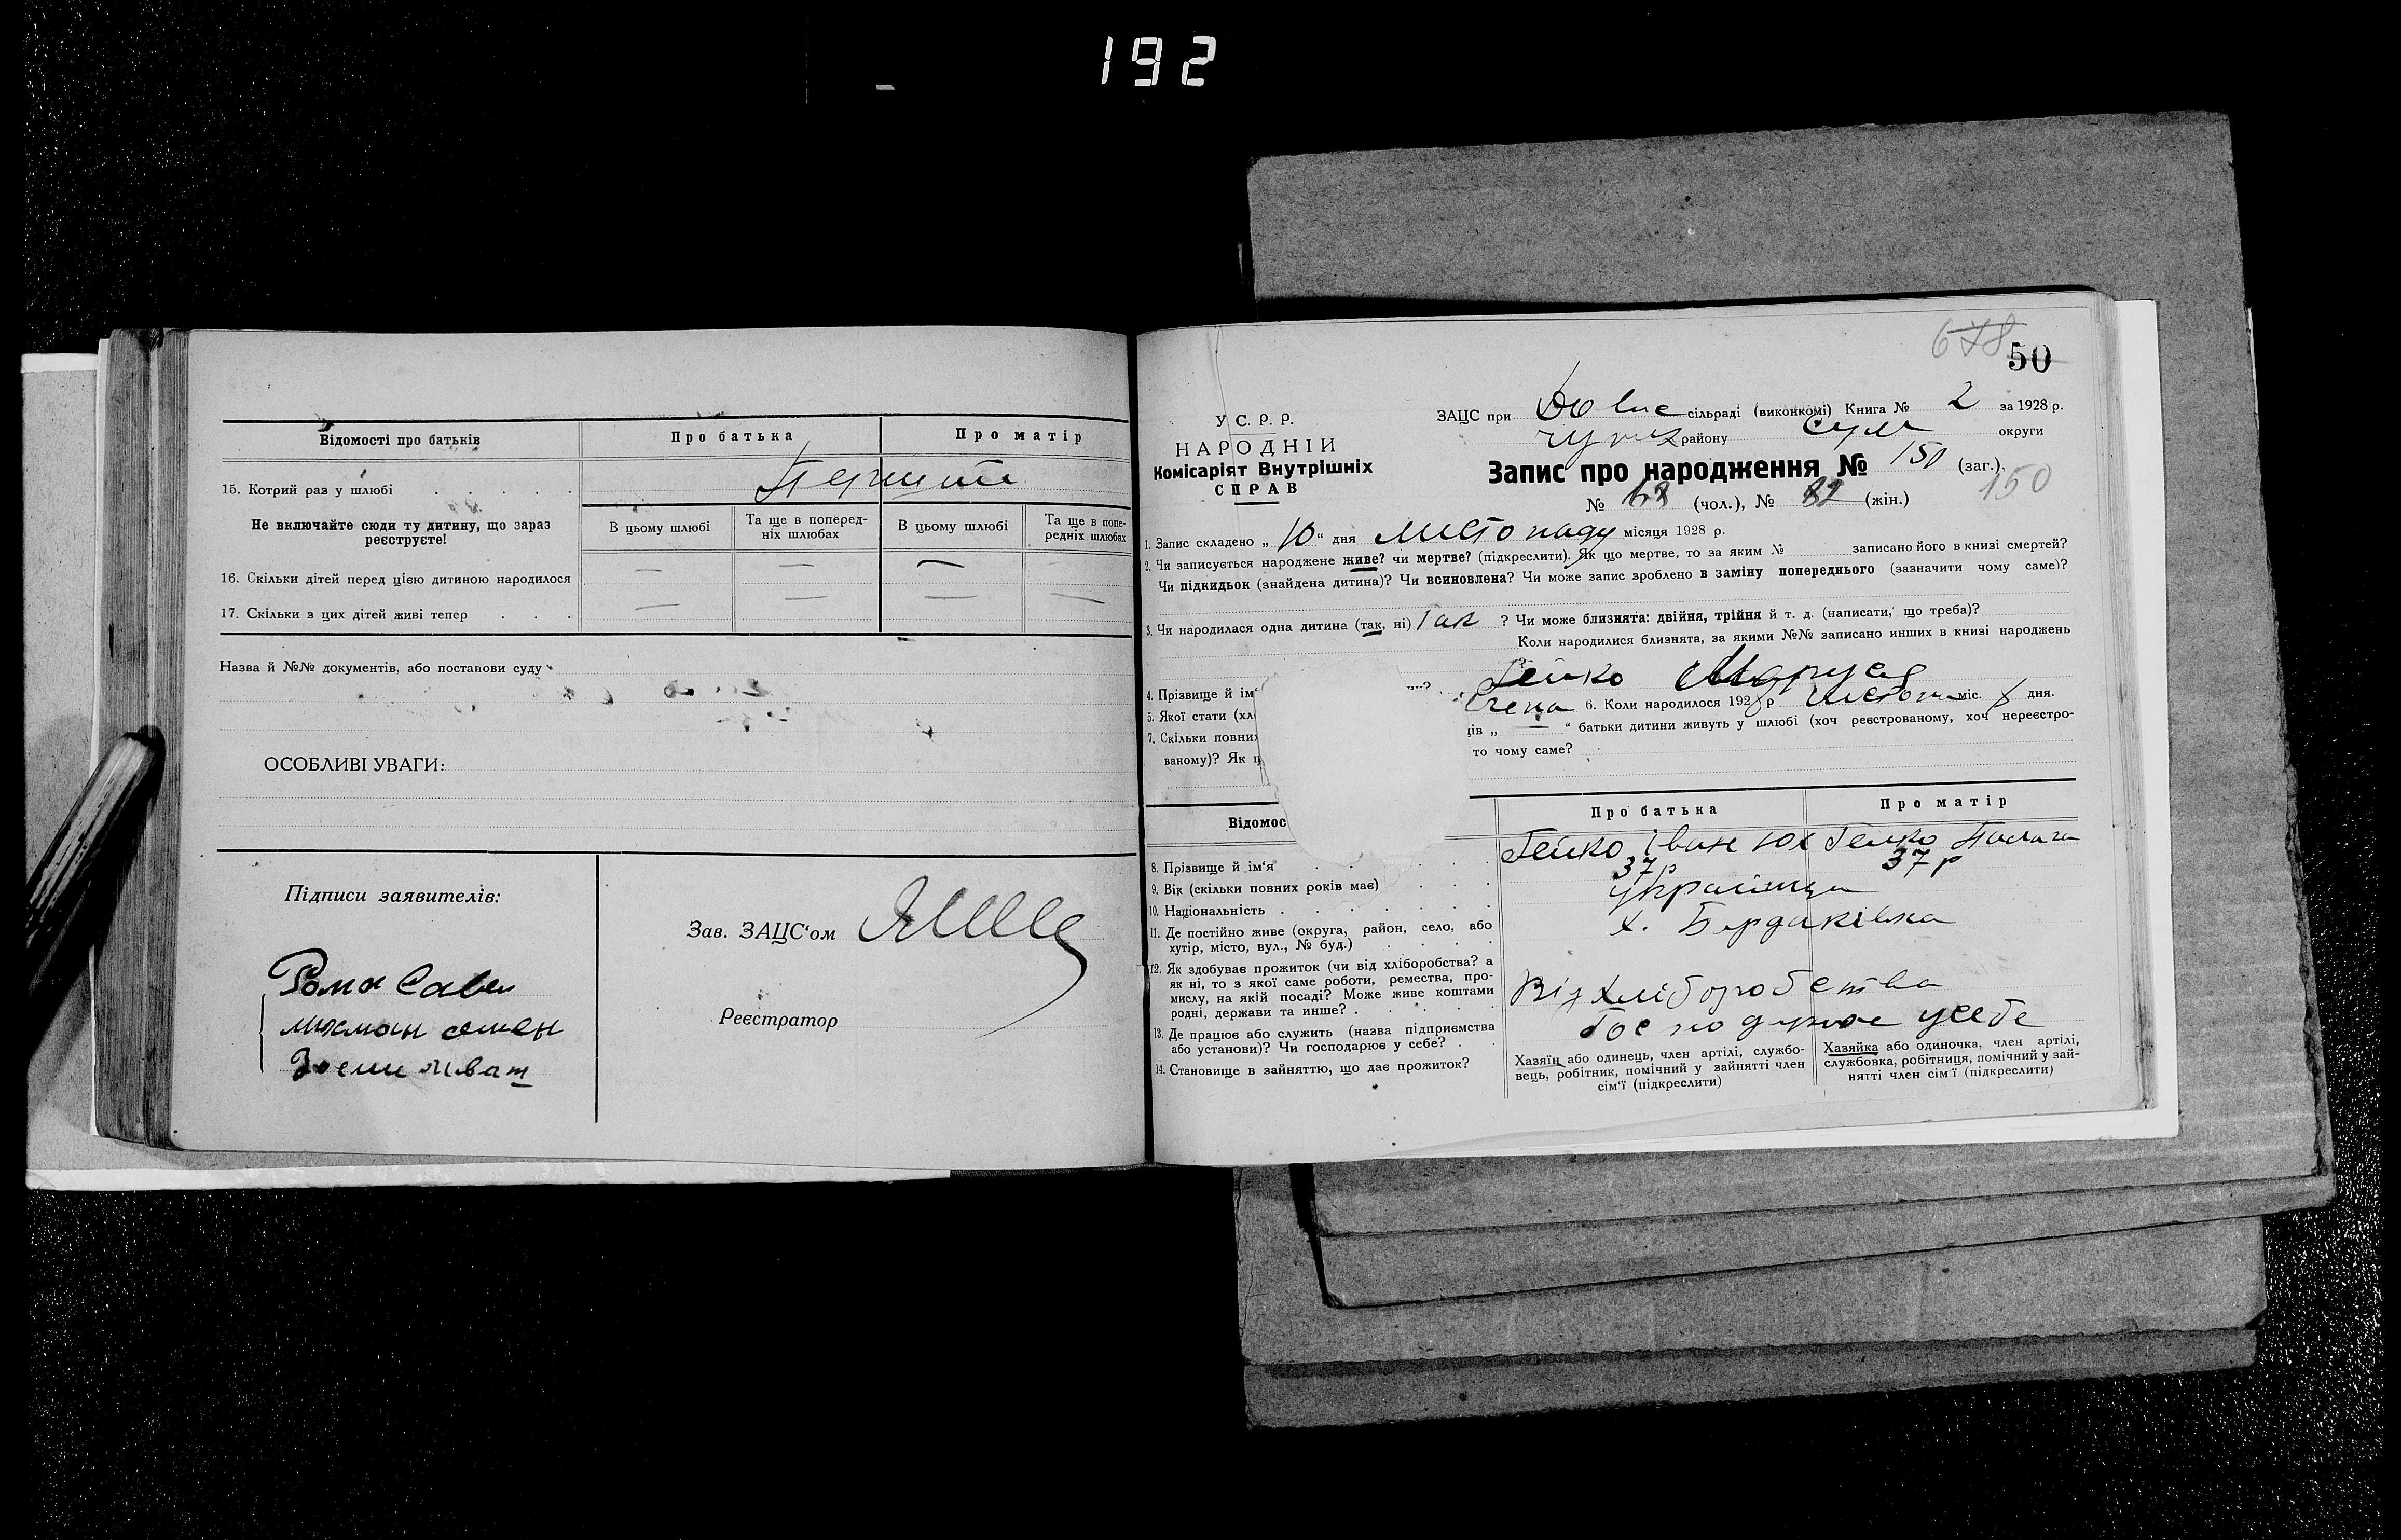 192
Відомості про батьків
Про батька
Про матір
15. Котрий раз у шлюбі
Не включайте сюди ту дитину, що зараз
реєструєте!
В цьому шлюбі
Та ще в поперед-
ніх шлюбах
В цьому шлюбі
Та ще в попе-
редніх шлюбах
16. Скільки дітей перед цією дитиною народилося
— — — —
17. Скільки з цих дітей живі тепер
— — — —
Назва й №№ документів, або постанови суду
ОСОБЛИВІ УВАГИ:
Підписи заявителів:
Зав. ЗАЦС'ом
Реєстратор
678
50
У С. Р. Р.
НАРОДНІЙ
Комісаріят Внутрішніх
СПРАВ
ЗАЦС при сільраді (виконкомі) Книга № 2 за 1928 р.
району Сум округи
Запис про народження № 150 (заг.),
150
№ (чол.), № (жін.)
1. Запис складено „ 10 “ дня листопаду місяця 1928 р.
2. Чи записується народжене живе? чи мертве? (підкреслити). Як що мертве, то за яким № записано його в книзі смертей?
Чи підкидьок (знайдена дитина)? Чи всиновлена? Чи може запис зроблено в заміну попереднього (зазначити чому саме)?
3. Чи народилася одна дитина (так, ні) Так ? Чи може близнята: двійня, трійня й т. д. (написати, що треба)?
Коли народилися близнята, за якими №№ записано инших в книзі народжень
4. Прізвище й ім' Гейко Маруся
5. Якої стати (хл 6. Коли народилося 1928 р міс. дня.
7. Скільки повних ців „ — “ батьки дитини живуть у шлюбі (хоч реєстрованому, хоч нереєстро-
ваному)? Як щ то чому саме?
Відомос
Про батька
Про матір
8. Прізвище й ім'я
Гейко Іван Юх
Гейко
9. Вік (скільки повних років має)
37 р
37 р
10. Національність
українци
11. Де постійно живе (округа, район, село, або
хутір, місто, вул., № буд.)
х. Бурдаківка
12. Як здобуває прожиток (чи від хліборобства? а
як ні, то з якої саме роботи, ремества, про-
мислу, на якій посаді? Може живе коштами
родні, держави та инше?
Від хліборобства
13. Де працює або служить (назва підприємства
або установи)? Чи господарює у себе?
Господарює у себе
14. Становище в зайняттю, що дає прожиток?
Хазяїн або одинець, член артілі, службо-
вець, робітник, помічний у зайнятті член
сім'ї (підкреслити)
Хазяйка або одиночка, член артілі,
службовка, робітниця, помічний у зай-
нятті член сім'ї (підкреслити)